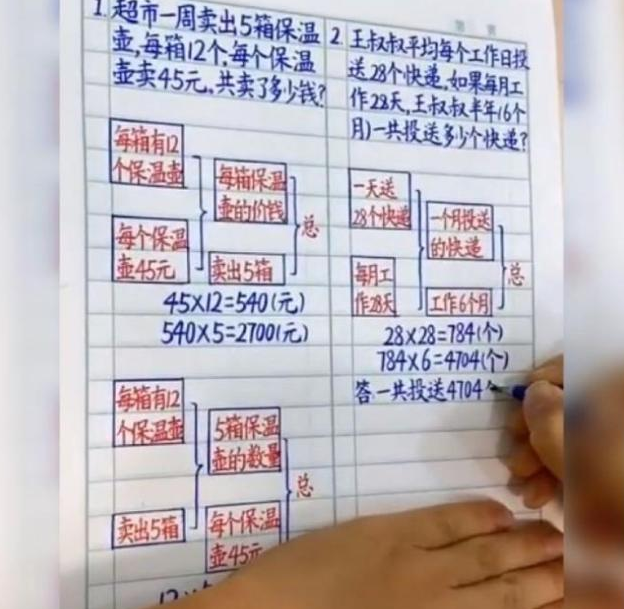 1.超市一周卖出5箱保温
壶,每箱12个,每个保温
壶卖45元,共卖了多少钱?
每箱有12
个保温壶
每箱保温
壶的价钱
总
每个保温
壶45元
卖出5箱
45×12=540(元)
540×5=2700(元)
每箱有12
个保温壶
5箱保温
壶的数量
总
卖出5箱
每个保温
壶45元
2.王叔叔平均每个工作日投
送28个快递,如果每月工
作28天,王叔叔半年(6个
月)一共投送多少个快递?
一天送
28个快递
一个月投送
的快递
总
每月工
作28天
工作6个月
28×28=784(个)
784×6=4704(个)
答一共投送4704